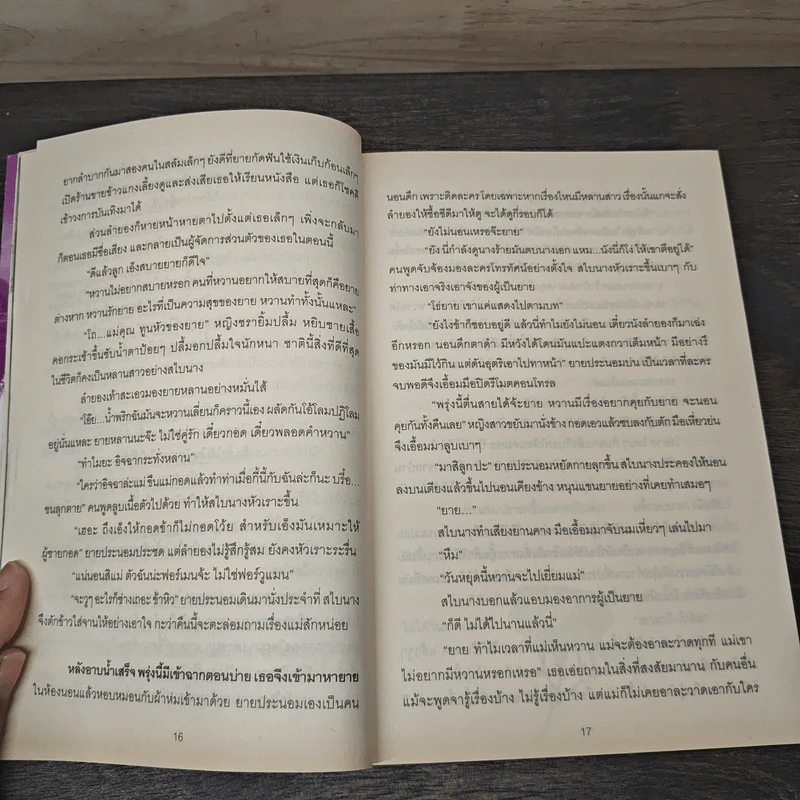 ยากลำบากกันมาสองคนในสลัมเล็กๆ ยังดีที่ยายกัดฟันใช้เงินเก็บก้อนเล็กๆ
เปิดร้านขายข้าวแกงเลี้ยงดูและส่งเสียเธอให้เรียนหนังสือ แต่เธอก็โชคดี
เข้าวงการบันเทิงมาได้
ส่วนลำยองก็หายหน้าหายตาไปตั้งแต่เธอเล็กๆ เพิ่งจะกลับมา
ก็ตอนเธอมีชื่อเสียง และกลายเป็นผู้จัดการส่วนตัวของเธอในตอนนี้
“ดีแล้วลูก เอ็งสบายยายก็ดีใจ”
“หวานไม่อยากสบายหรอก คนที่หวานอยากให้สบายที่สุดก็คือยาย
ต่างหาก หวานรักยาย อะไรที่เป็นความสุขของยาย หวานทำทั้งนั้นแหละ”
“โถ...แม่คุณ ทูนหัวของยาย” หญิงชรายิ้มปลื้ม หยิบชายเสื้อ
คอกระเช้าขึ้นซับน้ำตาป้อยๆ ปลื้มอกปลื้มใจนักหนา ชาตินี้สิ่งที่ดีที่สุด
ในชีวิตก็คงเป็นหลานสาวอย่างสไบนาง
ลำยองเท้าสะเอวมองยายหลานอย่างหมั่นไส้
“โอ๊ย...น้ำพริกฉันมันจะหวานเลี่ยนก็คราวนี้เอง ผลัดกันโอ้โลมปฏิโลม
อยู่นั่นแหละ ยายหลานนะจ๊ะ ไม่ใช่คู่รัก เดี๋ยวกอด เดี๋ยวพลอดคำหวาน”
“ทำไมยะ อิจฉากระทั่งหลาน”
“ใครว่าอิจฉาล่ะแม่ ขืนแม่กอดแล้วทำท่าเมื่อกี้นี้กับฉันล่ะก็นะ บรื๋อ...
ขนลุกตาย” คนพูดลูบเนื้อตัวไปด้วย ทำให้สไบนางหัวเราะขึ้น
“เฮอะ ถึงเอ็งให้กอดข้าก็ไม่กอดโว้ย สำหรับเอ็งมันเหมาะให้
ผู้ชายกอด” ยายประนอมประชด แต่ลำยองไม่รู้สึกรู้สม ยังคงหัวเราะระรื่น
“แน่นอนสิแม่ ตัวฉันน่ะฟอร์เมนจ้ะ ไม่ใช่ฟอร์วูแมน”
“จะวูๆ อะไรก็ช่างเถอะ ข้าหิว” ยายประนอมเดินมานั่งประจำที่ สไบนาง
จึงตักข้าวใส่จานให้อย่างเอาใจ กะว่าคืนนี้จะตะล่อมถามเรื่องแม่สักหน่อย
หลังอาบน้ำเสร็จ พรุ่งนี้มีเข้าฉากตอนบ่าย เธอจึงเข้ามาหายาย
ในห้องนอนแล้วหอบหมอนกับผ้าห่มเข้ามาด้วย ยายประนอมเองเป็นคน
16
นอนดึก เพราะติดละคร โดยเฉพาะหากเรื่องไหนมีหลานสาว เรื่องนั้นแกจะสั่ง
ลำยองให้ซื้อซีดีมาให้ดู จะได้ดูกี่รอบก็ได้
“ยังไม่นอนเหรอจ๊ะยาย”
“ยัง นี่กำลังดูนางร้ายมันตบนางเอก แหม...นังนี่ก็โง่ ให้เขาตีอยู่ได้”
คนพูดจับจ้องมองละครโทรทัศน์อย่างตั้งใจ สไบนางหัวเราะขึ้นเบาๆ กับ
ท่าทางเอาจริงเอาจังของผู้เป็นยาย
“โธ่ยาย เขาแค่แสดงไปตามบท”
“ยังไงข้าก็ชอบอยู่ดี แล้วนี่ทำไมยังไม่นอน เดี๋ยวนังลำยองก็มาเฉ่ง
อีกหรอก นอนดึกตาดำ มีหวังได้โดนมันแปะแตงกวาเต็มหน้า มีอย่างรึ
ของมันมีไว้กิน แต่ดันอุตริเอาไปทาหน้า” ยายประนอมบ่น เป็นเวลาที่ละคร
จบพอดีจึงเอื้อมมือปิดรีโมตคอนโทรล
“พรุ่งนี้ตื่นสายได้จ้ะยาย หวานมีเรื่องอยากคุยกับยาย จะนอน
คุยกันทั้งคืนเลย” หญิงสาวขยับมานั่งข้าง กอดเอวแล้วซบลงกับตัก มือเหี่ยวย่น
จึงเอื้อมมาลูบเบาๆ
“มาสิลูก ปะ” ยายประนอมหยัดกายลุกขึ้น สไบนางประคองให้นอน
ลงบนเตียงแล้วขึ้นไปนอนเคียงข้าง หนุนแขนยายอย่างที่เคยทำเสมอๆ
“ยาย...”
สไบนางทำเสียงยานคาง มือเอื้อมมาจับนมเหี่ยวๆ เล่นไปมา
“หืม”
“วันหยุดนี้หวานจะไปเยี่ยมแม่”
สไบนางบอกแล้วแอบมองอาการผู้เป็นยาย
“ก็ดี ไม่ได้ไปนานแล้วนี่”
“ยาย ทำไมเวลาที่แม่เห็นหวาน แม่จะต้องอาละวาดทุกที แม่เขา
ไม่อยากมีหวานหรอกเหรอ” เธอเอ่ยถามในสิ่งที่สงสัยมานาน กับคนอื่น
แม้จะพูดจารู้เรื่องบ้าง ไม่รู้เรื่องบ้าง แต่แม่ก็ไม่เคยอาละวาดเอากับใคร
17